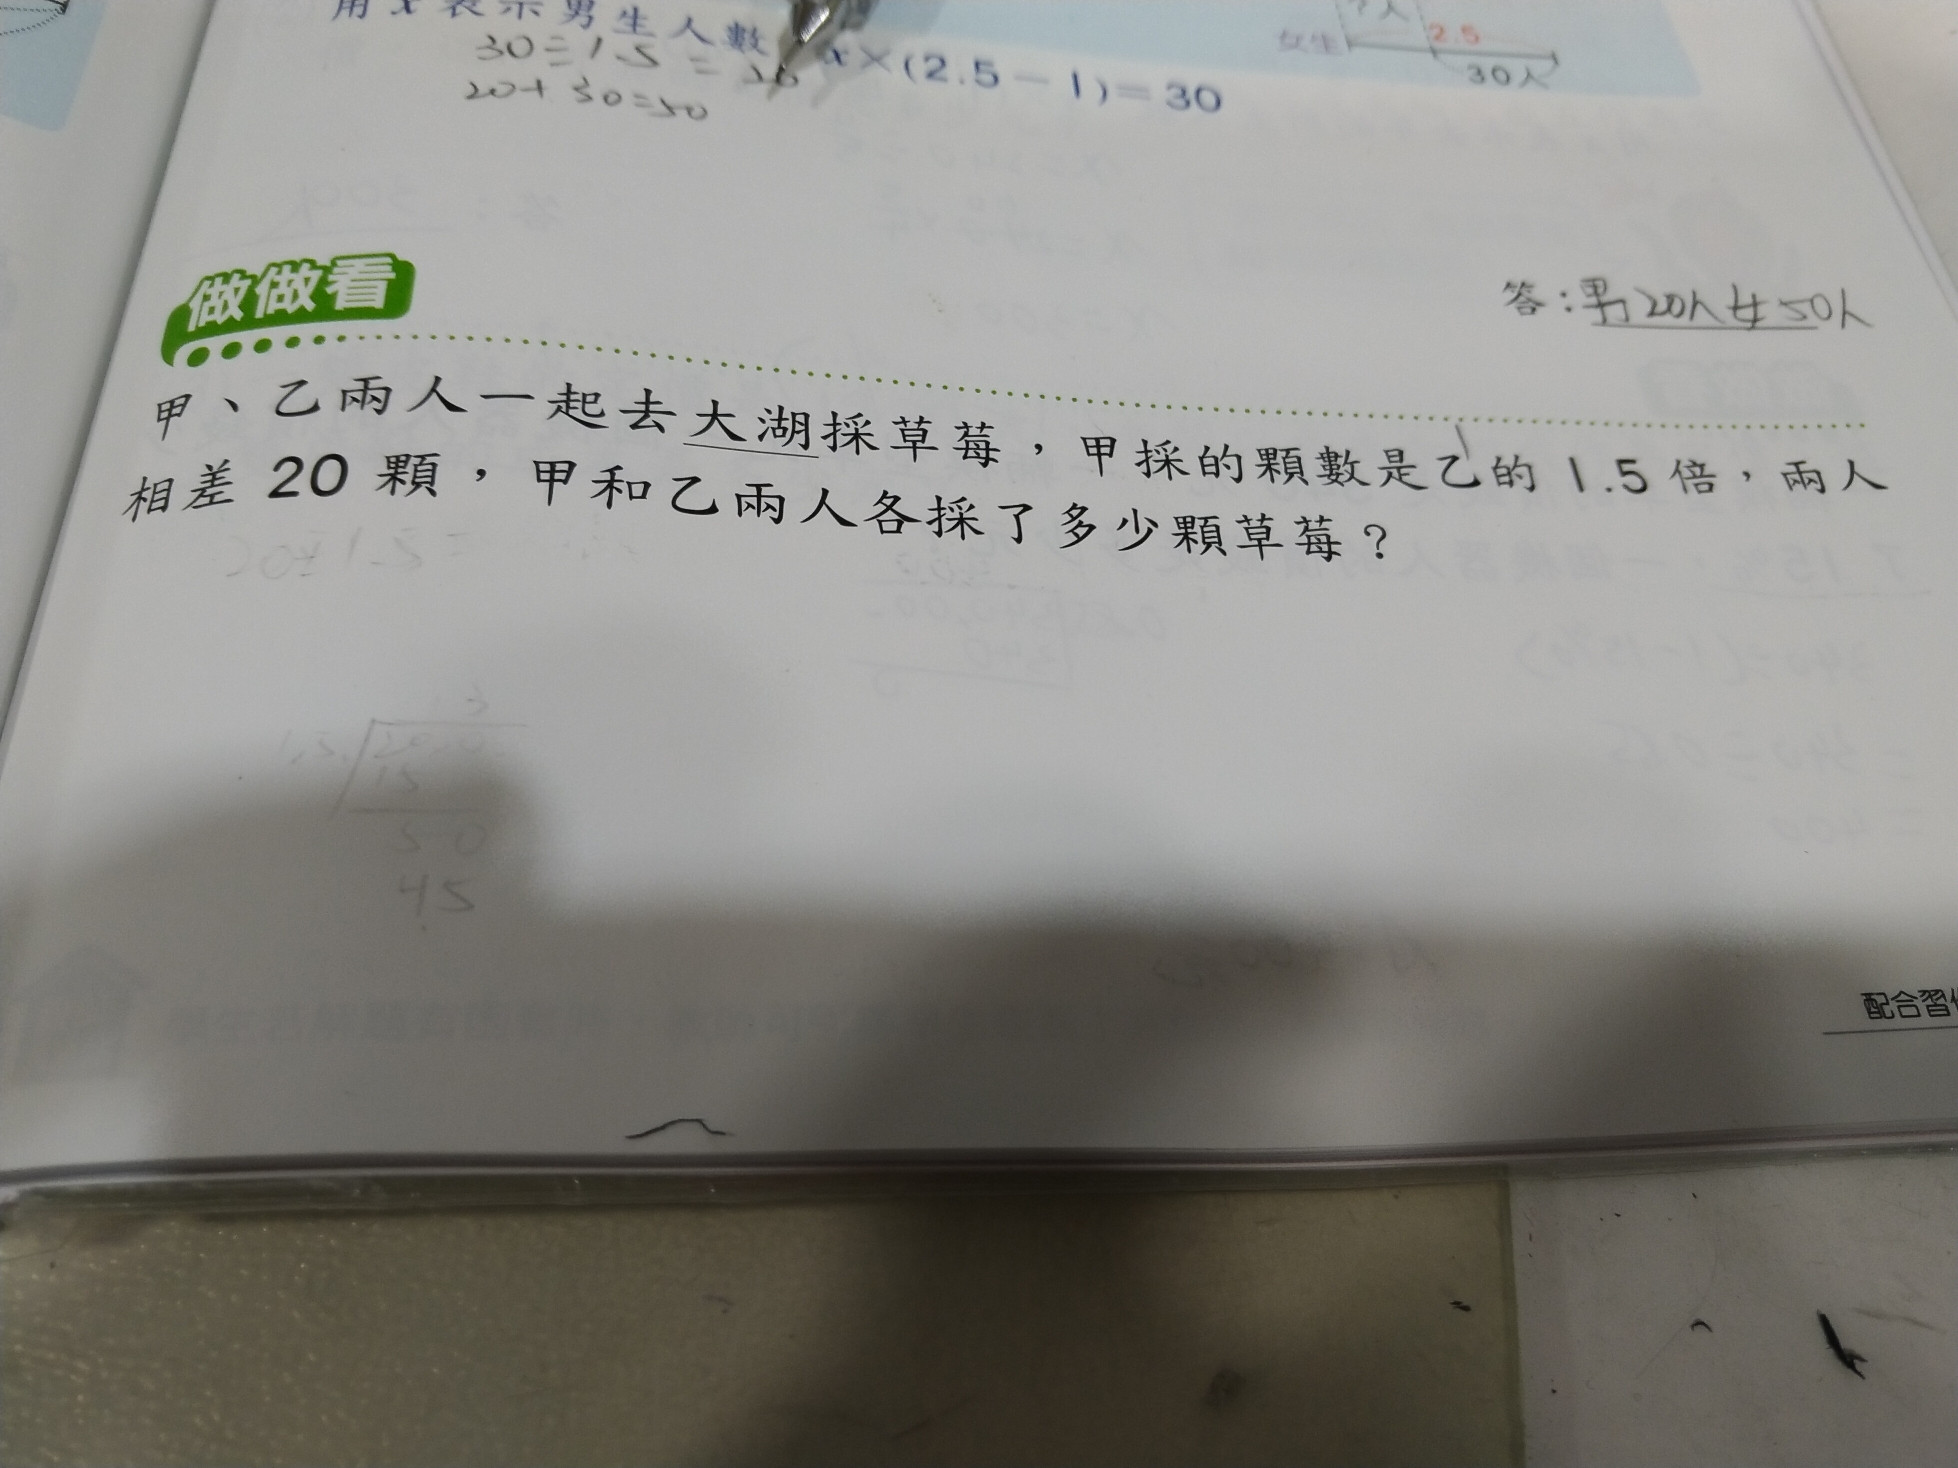 用x表示男生人數 x×(2.5-1)=30
女生 ?人 2.5
30人
30÷1.5=20
20+30=50
答:男20人女50人
做做看
甲、乙兩人一起去大湖採草莓,甲採的顆數是乙的1.5倍,兩人
相差20顆,甲和乙兩人各採了多少顆草莓?
配合習